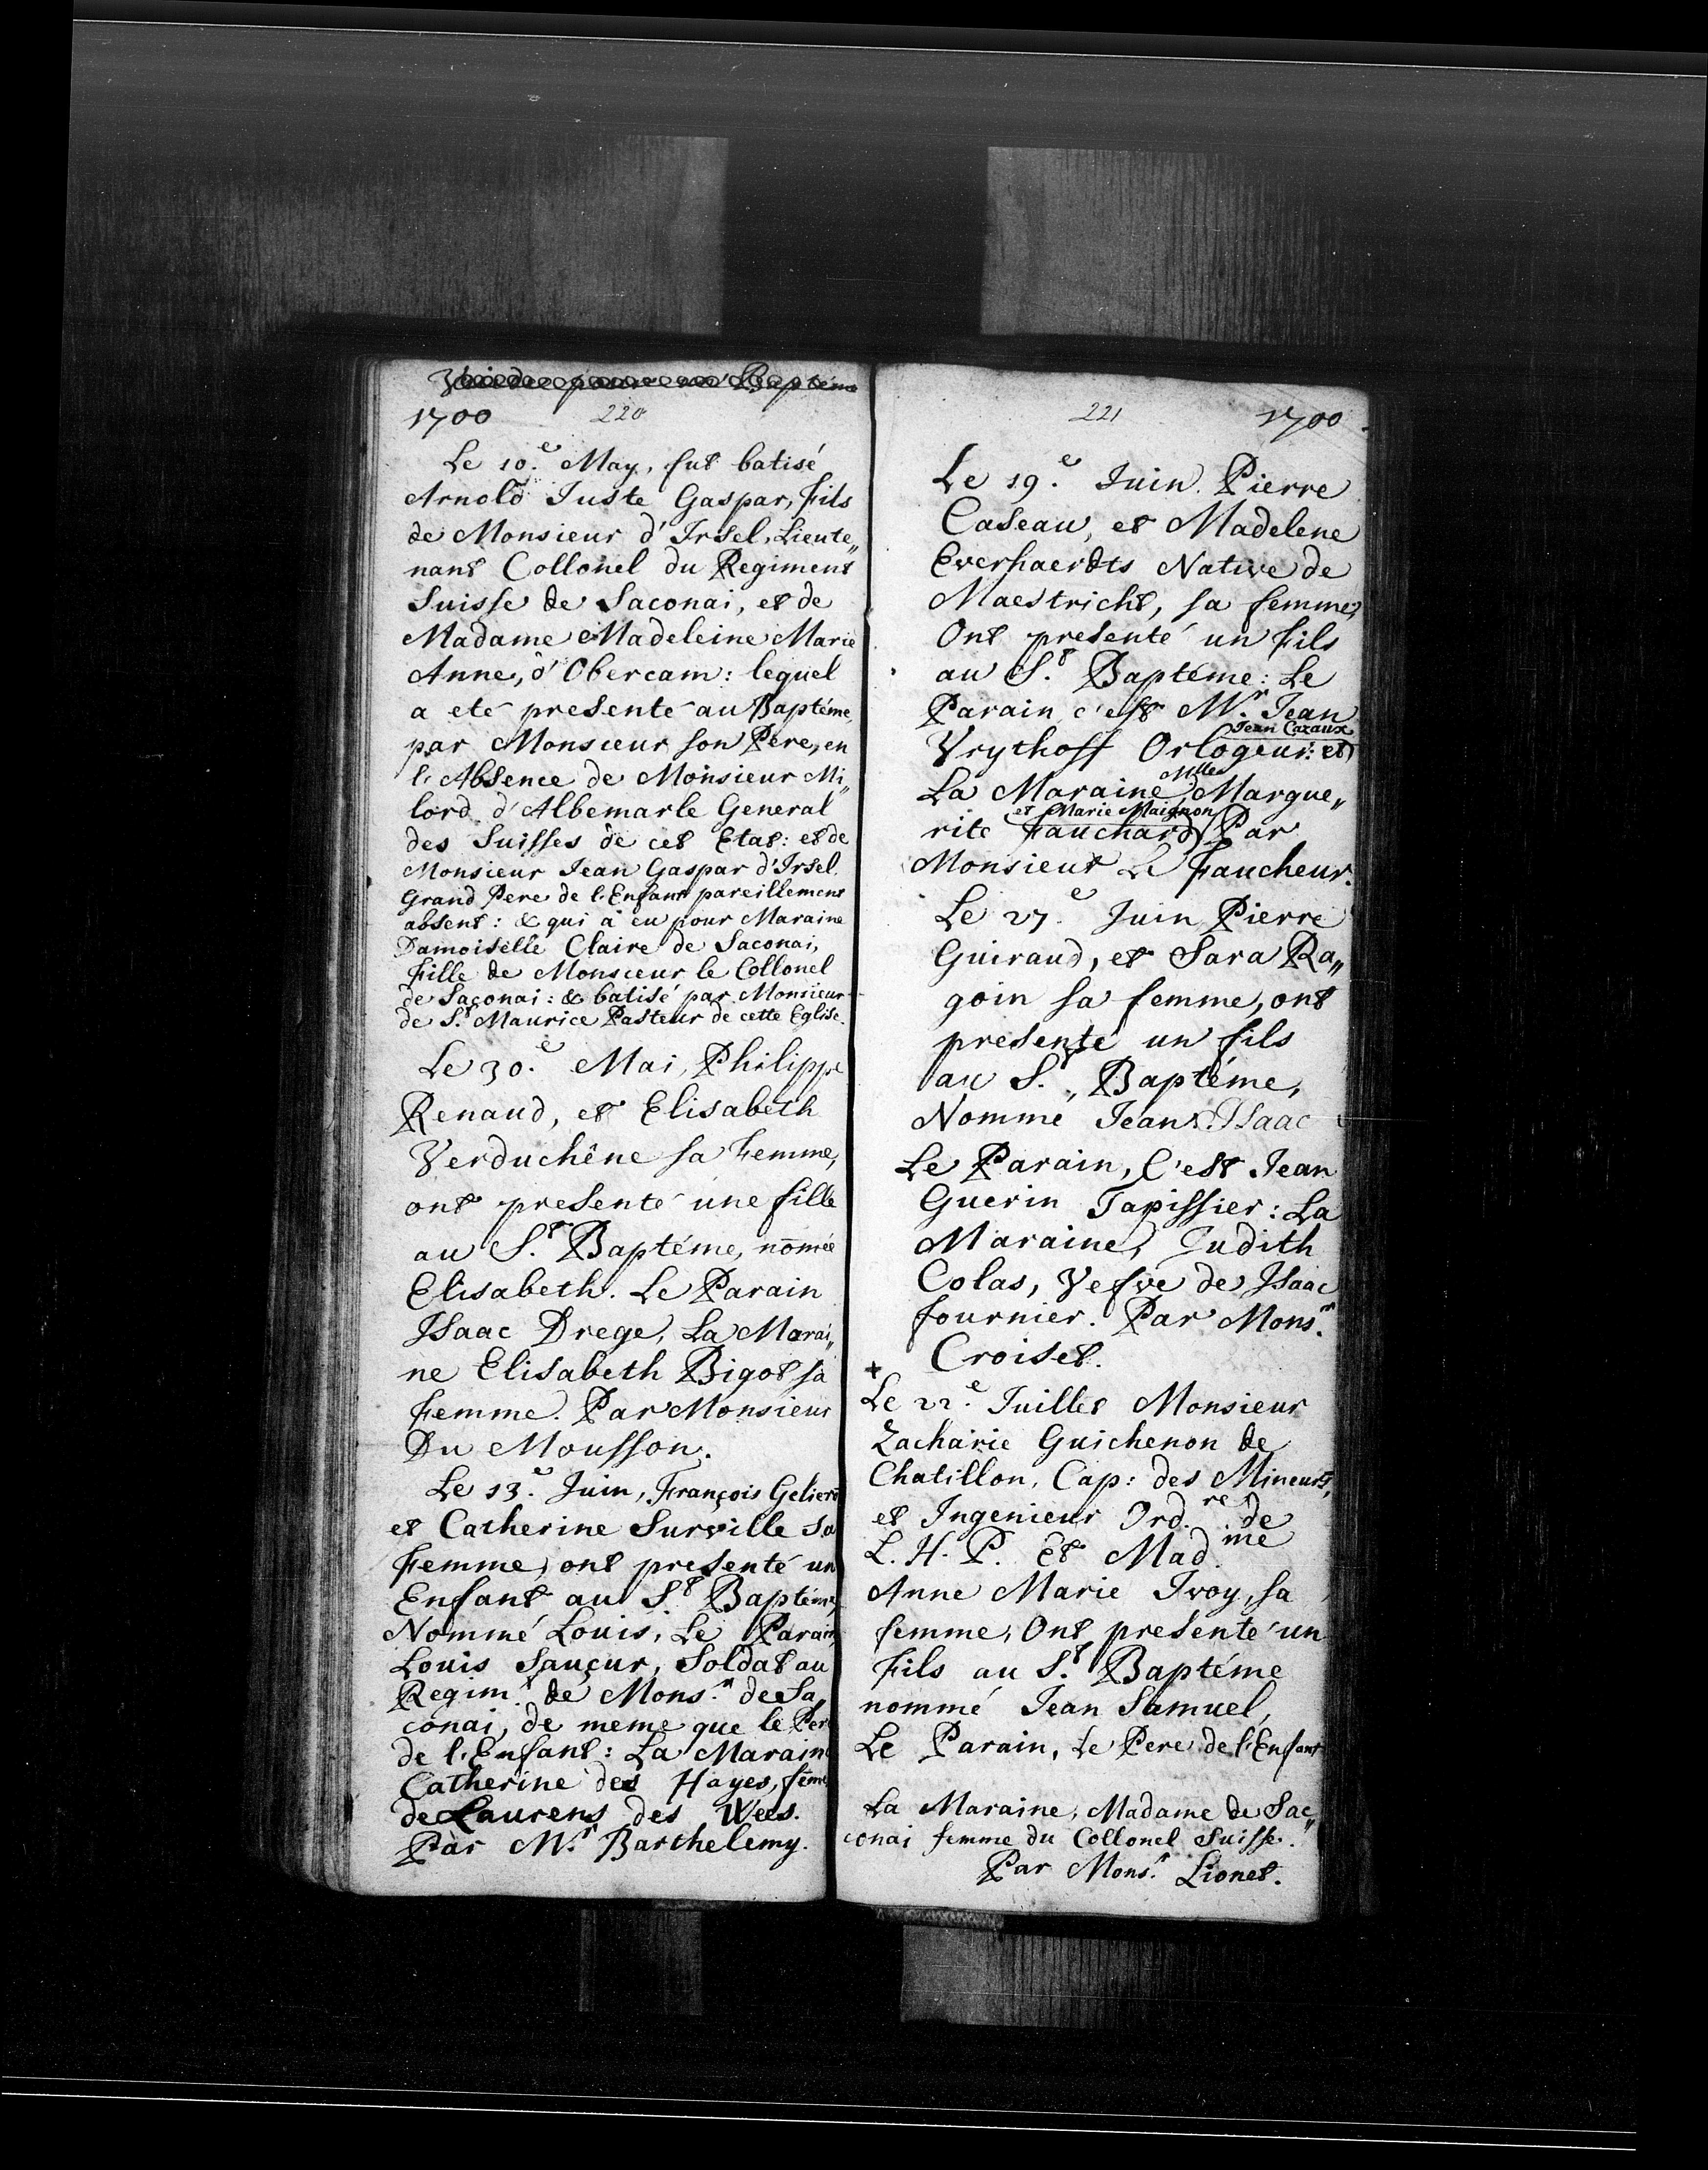 1700 220
Le 10.e May, fut batisé
Arnold Juste Gaspar, Fils
de Monsieur d'Irsel, Lieute„
nant Collonel du Regiment
Suisse de Saconai, et de
Madame Madeleine Marie
Anne, d'Obercam: lequel
a eté presenté au Baptéme,
par Monsieur son Pere, en
l'Absence de Monsieur Mi„
lord d'Albemarle General
des Suisses de cet Etat: et de
Monsieur Jean Gaspar d'Irsel.
Grand Pere de l'Enfant pareillement
absent: & qui à eu pour Maraine
Damoiselle Claire de Saconai,
Fille de Monsieur le Collonel
de Saconai: & batisé par Monsieur
de S.t Maurice Pasteur de cette Eglise.
Le 30.e Mai, Philippe
Renaud, et Elisabeth
Verduchêne sa Femme,
ont presenté une fille
au S.t Baptéme, nom̄ée
Elisabeth. Le Parain
Isaac Drege, La Marai„
ne Elisabeth Bigot sa
Femme. Par Monsieur
Du Mousson.
Le 13.e Juin, François Gelierd
et Catherine Surville sa
Femme, ont presenté un
Enfant au S.t Baptéme,
Nommé Louis, Le Parain,
Louis Sauçur, Soldat au
Regim.t de Mons.r de Sa„
conai, de meme que le Pere
de l'Enfant: La Maraine
Catherine des Hayes, fēme
de Laurens des Wees.
Par M.r Barthelemy.
221 1700
Le 19.e Juin. Pierre
Caseau, et Madelene
Everhaerdts Native de
Maestricht, sa femme,
Ont presenté un Fils
au S.t Baptéme: Le
Parain c'est M.r Jean
Jean Cazaux
Vrythoff Orlogeur: et
Mlle
La Maraine Margue„
et Marie Maignon
rite Fauchard Par
Monsieur Le Faucheur.
Le 27.e Juin Pierre
Guiraud, et Sara Ra„
goin sa femme, ont
presenté un fils
au S.t Baptéme,
Nommé Jean Isaac
Le Parain, C'est Jean
Guerin Tapissier: La
Maraine, Judith
Colas, Vefve de Isaac
fournier. Par Mons.r
Croiset.
+
Le 22.e Juillet Monsieur
Zacharie Guichenon de
Chatillon, Cap: des Mineurs,
et Ingenieur Ord.re de
L. H. P. Et Mad.me
Anne Marie Ivoy, sa
femme, Ont presenté un
Fils au S.t Baptéme
nommé Jean Samuel,
Le Parain, Le Pere de l'Enfant
La Maraine, Madame de Sac„
conai femme du Collonel Suisse.
Par Mons.r Lionet.